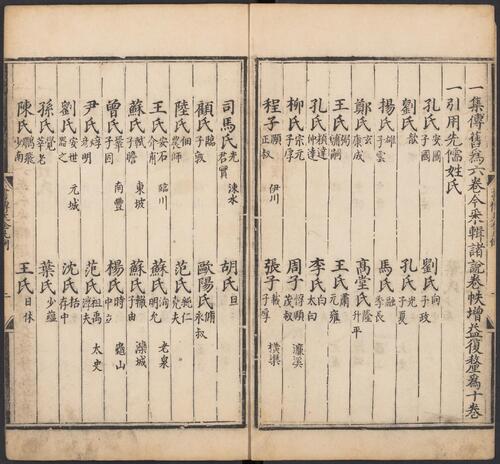 一集傳舊爲六卷今采輯諸說卷帙增益復釐爲十卷
一引用先儒姓氏
孔氏安國子國 劉氏向子政
劉氏歆 孔氏光子夏
揚氏雄子雲 馬氏融季長
鄭氏玄康成 高堂氏隆升平
王氏弼輔嗣 王氏肅元雍
孔氏穎達仲達 李氏白太白
柳氏宗元子厚 周子惇頤茂叔 濂溪
程子頤正叔 伊川 張子載子厚 橫渠
司馬氏光君實 涑水 胡氏旦
顧氏臨子敦 歐陽氏脩永叔
陸氏佃農師 范氏純仁堯夫
王氏安石介甫 臨川 蘇氏洵明允 老泉
蘇氏軾子瞻 東坡 蘇氏轍子由 灤城
曾氏鞏子固 南豐 楊氏時中立 龜山
尹氏焞彦明 范氏祖禹淳夫 太史
劉氏安世器之 元城 沈氏括存中
孫氏覺莘老 葉氏少蘊
陳氏鵬飛少南 王氏日休